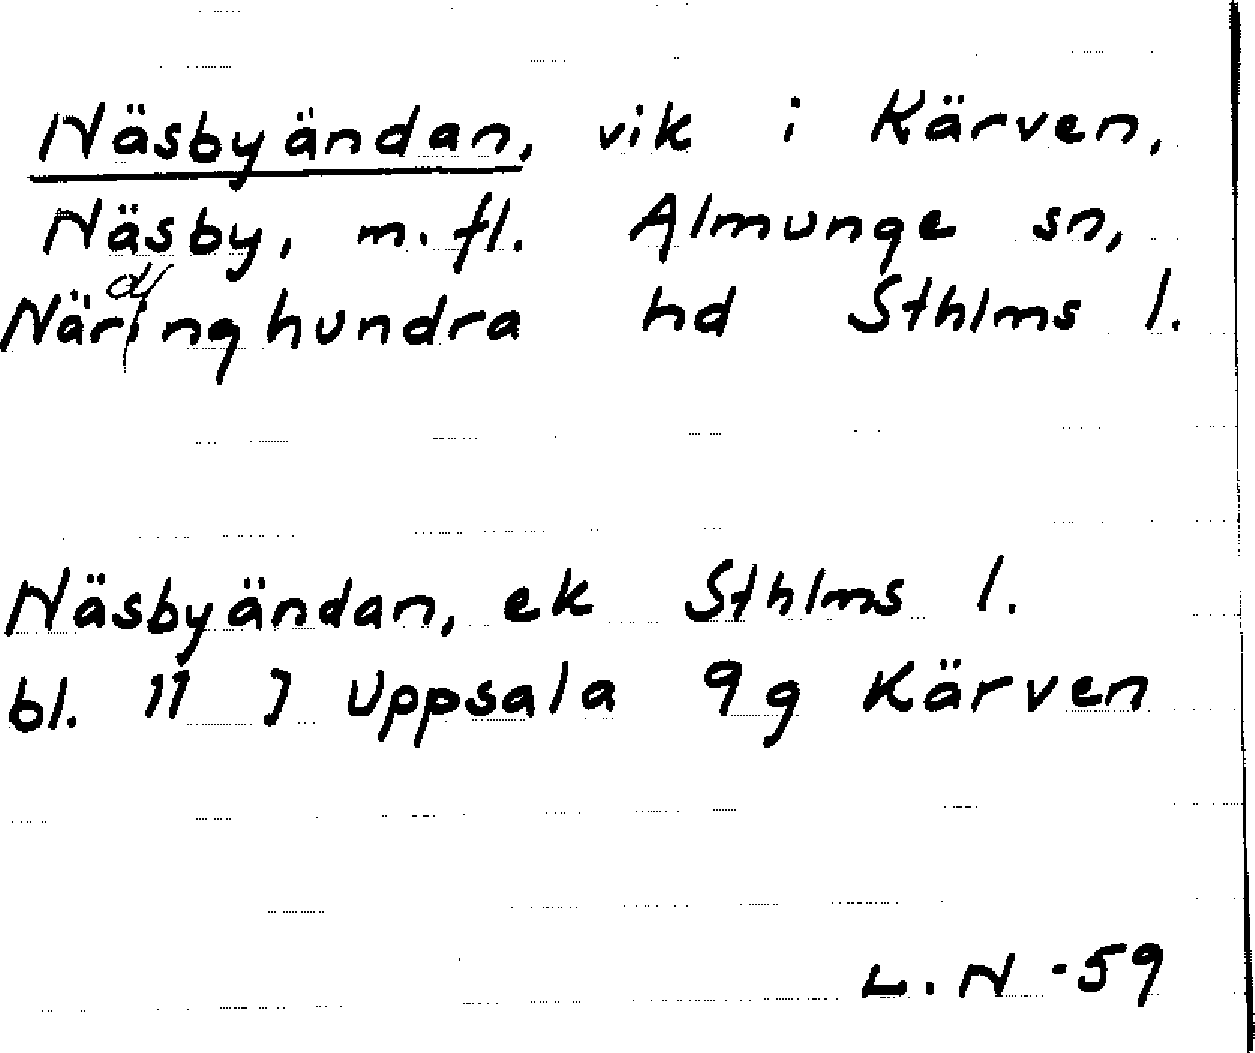 Näsbyändan, vik i Kärven,
Näsby, m.fl. Almunge sn,
Närdinghundra hd Sthlms l.
Näsbyändan, ek Sthlms l.
bl. 11 J Uppsala 9g Kärven
L.N -59